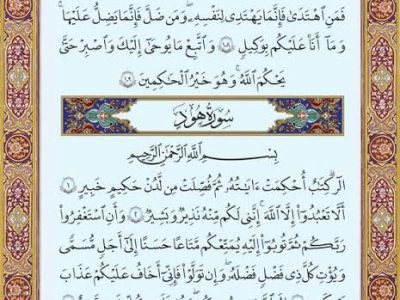 فَمَنِ ٱهْتَدَىٰ فَإِنَّمَا يَهْتَدِى لِنَفْسِهِۦ ۖ وَمَن ضَلَّ فَإِنَّمَا يَضِلُّ عَلَيْهَا ۖ
وَمَآ أَنَا۠ عَلَيْكُم بِوَكِيلٍ ١٠٨ وَٱتَّبِعْ مَا يُوحَىٰٓ إِلَيْكَ وَٱصْبِرْ حَتَّىٰ
يَحْكُمَ ٱللَّهُ ۚ وَهُوَ خَيْرُ ٱلْحَـٰكِمِينَ ١٠٩
سُورَةُ هُودٍ
بِسْمِ ٱللَّهِ ٱلرَّحْمَـٰنِ ٱلرَّحِيمِ
الٓر ۚ كِتَـٰبٌ أُحْكِمَتْ ءَايَـٰتُهُۥ ثُمَّ فُصِّلَتْ مِن لَّدُنْ حَكِيمٍ خَبِيرٍ ١
أَلَّا تَعْبُدُوٓا۟ إِلَّا ٱللَّهَ ۚ إِنَّنِى لَكُم مِّنْهُ نَذِيرٌ وَبَشِيرٌ ٢ وَأَنِ ٱسْتَغْفِرُوا۟
رَبَّكُمْ ثُمَّ تُوبُوٓا۟ إِلَيْهِ يُمَتِّعْكُم مَّتَـٰعًا حَسَنًا إِلَىٰٓ أَجَلٍ مُّسَمًّى
وَيُؤْتِ كُلَّ ذِى فَضْلٍ فَضْلَهُۥ ۖ وَإِن تَوَلَّوْا۟ فَإِنِّىٓ أَخَافُ عَلَيْكُمْ عَذَابَ